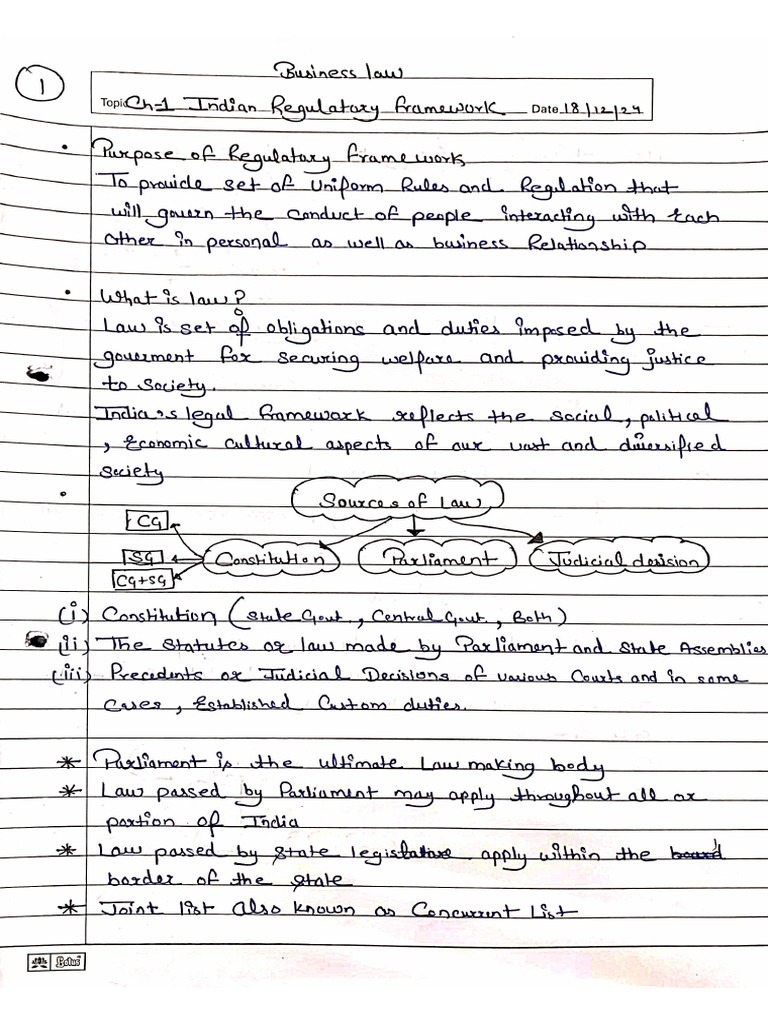 Business law
1
Topic Ch-1 Indian Regulatory framework Date 18/12/24
• Purpose of Regulatory framework
To provide set of Uniform Rules and Regulation that
will govern the conduct of people interacting with Each
other in personal as well as business Relationship
• What is law?
Law is set of obligations and duties imposed by the
goverment for securing welfare and providing justice
to Society.
India's legal framework reflects the social, political
, Economic cultural aspects of our vast and diversified
society
• Sources of Law
CG
SG
CG+SG
Constitution Parliament Judicial decision
(i) Constitution (State Govt., Central Govt., Both)
(ii) The Statutes or law made by Parliament and State Assemblies
(iii) Precedents or Judicial Decisions of various Courts and in some
cases, Established Custom duties.
* Parliament is the ultimate Law making body
* Law passed by Parliament may apply throughout all or
portion of India
* Law passed by State legislature apply within the board
border of the state
* Joint list also known as Concurrent List
Lotus